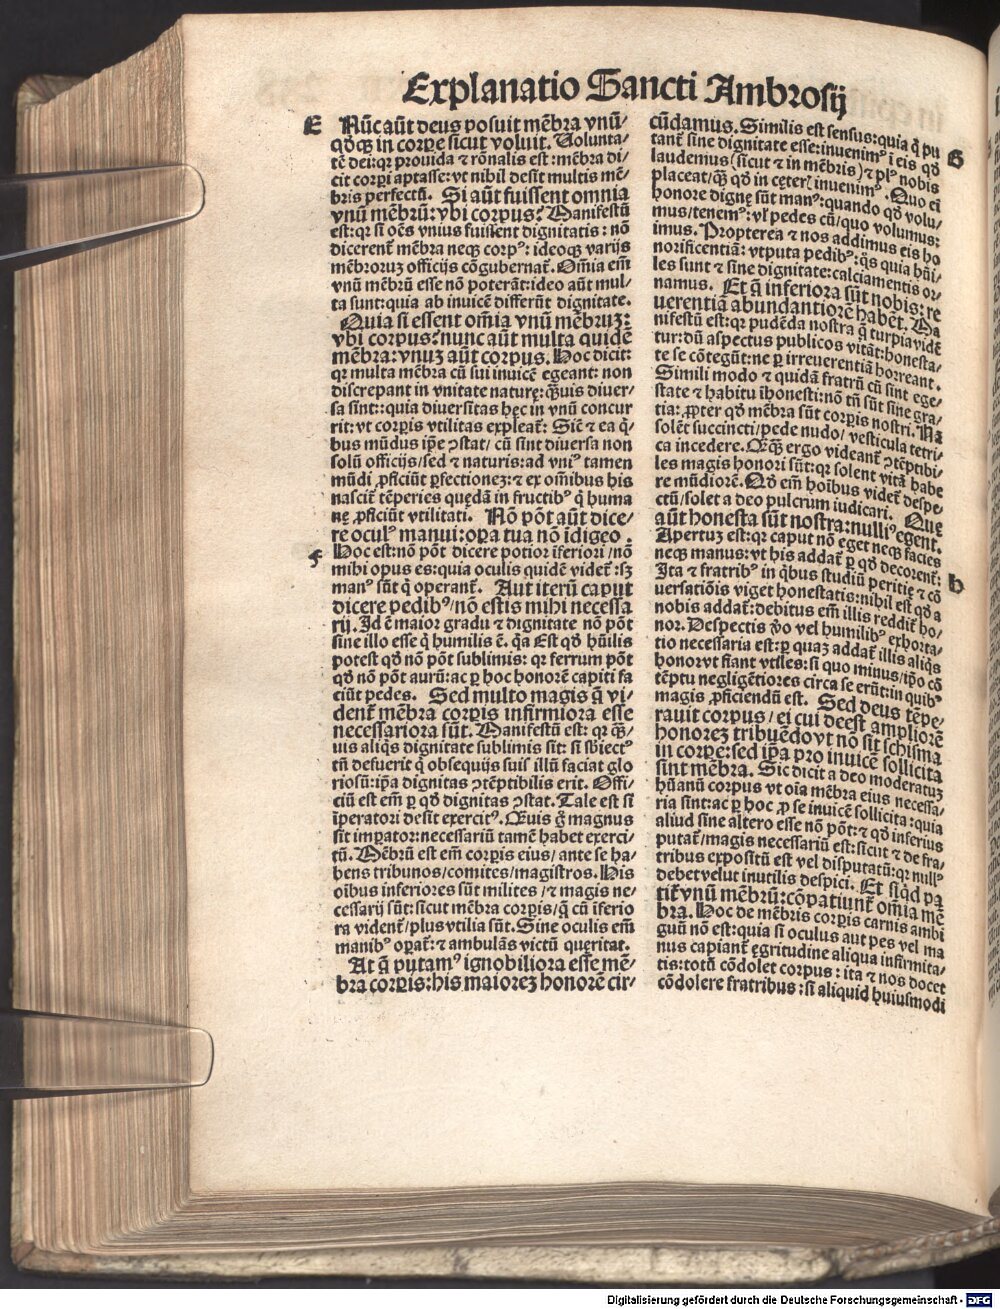 Explanatio Sancti Ambrosij
E
Nūc aūt deus posuit mēbra vnū/
qdqꝫ in corpe sicut voluit. Uolunta/
tē dei: qꝛ prouida ⁊ rōnalis est: mēbra di/
cit corpi aptasse: vt nihil desit multis mē/
bris perfectū. Si aūt fuissent omnia
vnū mēbrū: vbi corpus? Manifestū
est: qꝛ si oēs vnius fuissent dignitatis: nō
dicerent̄ mēbra neqꝫ corpꝰ: ideoqꝫ varijs
mēbroruꝫ officijs cōgubernat̄. Om̄ia em̄
vnū mēbrū esse nō poterāt: ideo aūt mul/
ta sunt: quia ab inuicē differūt dignitate.
Quia si essent om̄ia vnū mēbruꝫ:
vbi corpus? nunc aūt multa quidē
mēbra: vnuꝫ aūt corpus. Hoc dicit:
qꝛ multa mēbra cū sui inuicē egeant: non
discrepant in vnitate naturę: q̄ꝫuis diuer/
sa sint: quia diuersitas hęc in vnū concur
rit: vt corpis vtilitas expleat̄: Sic̄ ⁊ ea q̇/
bus mūdus ip̄e ꝯstat/ cū sint diuersa non
solū officijs/sed ⁊ naturis: ad vniꝰ tamen
mūdi ꝓficiūt ꝑfectioneꝫ: ⁊ ex om̄ibus his
nascit̄ tēperies quędā in fructibꝰ q̇ huma
nę ꝓficiūt vtilitati. Nō pōt aūt dice/
re oculꝰ manui: opa tua nō idigeo.
f
Hoc est: nō pōt dicere potior iferiori/nō
mihi opus es: quia oculis quidē videt̄: sꝫ
manꝰ sūt q̄ operant̄. Aut iterū caput
dicere pedibꝰ/nō estis mihi necessa
rij. Id ē maior gradu ⁊ dignitate nō pōt
sine illo esse q̇ humilis ē. q̇a Est qd hūilis
potest qd nō pōt sublimis: qꝛ ferrum pōt
qd nō pōt aurū: ac ꝑ hoc honorē capiti fa
ciūt pedes. Sed multo magis q̄ vi/
dent̄ mēbra corpis infirmiora esse
necessariora sūt. Manifestū est: qꝛ q̄ꝫ/
uis aliqs dignitate sublimis sit: si sbiectꝰ
tn̄ defuerit q̇ obsequijs suis illū faciat glo
riosū: ip̄a dignitas ꝯtēptibilis erit. Offi/
ciū est em̄ ꝑ qd dignitas ꝯstat. Tale est si
īperatori desit exercitꝰ. Quis q̄ magnus
sit impator: necessariū tamē habet exerci/
tū. Mēbrū est em̄ corpis eius/ ante se ha/
bens tribunos/comites/magistros. His
oībus inferiores sūt milites /⁊ magis ne/
cessarij sūt: sicut mēbra corpis/q̄ cū iferio
ra vident̄/plus vtilia sūt. Sine oculis em̄
manibꝰ opat̄: ⁊ ambulās victū queritat.
At q̄ putamꝰ ignobiliora esse mē/
bra corpis: his maioreꝫ honorē cir/
cūdamus. Similis est sensus: quia q̇ pu
G
tant̄ sine dignitate esse: inuenimꝰ ī eis qd
laudemus (sicut ⁊ in mēbris) ⁊ plꝰ nobis
placeat/q̄ꝫ qd in cęteris̄ inuenimꝰ. Quo ei
honore dignę sūt manꝰ: quando qd volu/
mus/tenemꝰ: vl̓ pedes cū/quo volumus:
imus. Propterea ⁊ nos addimus eis ho
norificentiā: vtputa pedibꝰ: q̇s quia hūi/
les sunt ⁊ sine dignitate: calciamentis or/
namus. Et q̄ inferiora sūt nobis: re
uerentiā abundantiorē habēt. Ma
nifestū est: qꝛ pudēda nostra q̄ turpia vidē
tur: dū aspectus publicos vitāt: honesta/
te se cōtegūt: ne ꝑ irreuerentiā horreant.
Simili modo ⁊ quidā fratrū cū sint ege/
state ⁊ habitu ihonesti: nō tn̄ sūt sine gra/
tia: ꝓpter qd mēbra sūt corpis nostri. Na
solēt succincti/pede nudo/ vesticula tetri/
ca incedere. Q̄ꝫqꝫ ergo videant̄ ꝯtēptibi/
les magis honori sūt: qꝛ solent vitā habe
re mūdiorē. Qd em̄ hoībus videt̄ despe/
ctū/solet a deo pulcrum iudicari. Quę
aūt honesta sūt nostra: nulliꝰ egent.
Apertuꝫ est: qꝛ caput nō eget neqꝫ facies
h
neqꝫ manus: vt his addat̄ ꝑ qd decorent̄:
Ita ⁊ fratribꝰ in q̇bus studiū peritię ⁊ cō
uersatiōis viget honestatis: nihil est qd a
nobis addat̄: debitus em̄ illis reddit̄ ho/
nor. Despectis v̓o vel humilibꝰ exhorta/
tio necessaria est: ꝑ quaꝫ addat̄ illis aliqs
honor vt fiant vtiles: si quo minus/ ip̄o cō
tēptu negligētiores circa se erūt: in quibꝰ
magis ꝓficiendū est. Sed deus tēpe/
rauit corpus/ ei cui deest ampliorē
honoreꝫ tribuēdo vt nō sit schisma
in corpe: sed ip̄a pro inuicē sollicita
sint mēbra. Sic dicit a deo moderatuꝫ
hūanū corpus vt oīa mēbra eius necessa/
ria sint: ac ꝑ hoc ꝓ se inuicē sollicita: quia
aliud sine altero esse nō pōt: ⁊ qd inferius
putat̄/magis necessariū est: sicut ⁊ de fra/
tribus expositū est vel disputatū: qꝛ nullꝰ
debet velut inutilis despici. Et siq̇d pa
tit̄ vnū mēbrū: cōpatiunt̄ om̄ia mē
bra. Hoc de mēbris corpis carnis ambi
guū nō est: quia si oculus aut pes vel ma
nus capiant̄ ęgritudine aliqua infirmita/
tis: totū cōdolet corpus: ita ⁊ nos docet
cōdolere fratribus: si aliquid huiusmodi
Digitalisierung gefördert durch die Deutsche Forschungsgemeinschaft - DFG